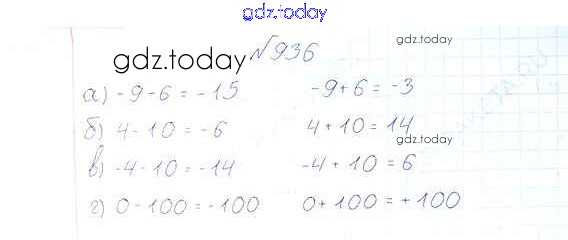 gdz.today
№936
gdz.today
gdz.today
а) -9-6 = -15   -9+6 = -3
б) 4-10 = -6   4+10 = 14
в) -4-10 = -14   -4+10 = 6
gdz.today
г) 0-100 = -100   0+100 = +100